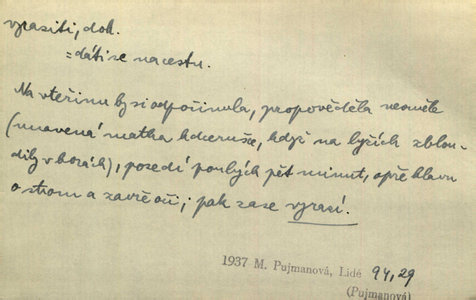 vyraziti, dok.
= dáti se na cestu.
Na vteřinu by si odpočinula, propověděla nesměle
(unavená matka k dceruše, když na lyžích zblou-
dily v horách), posedí pouhých pět minut, opře hlavu
o strom a zavře oči; pak zase vyrazí.
1937 M. Pujmanová, Lidé 94, 29
(Pujmanová)